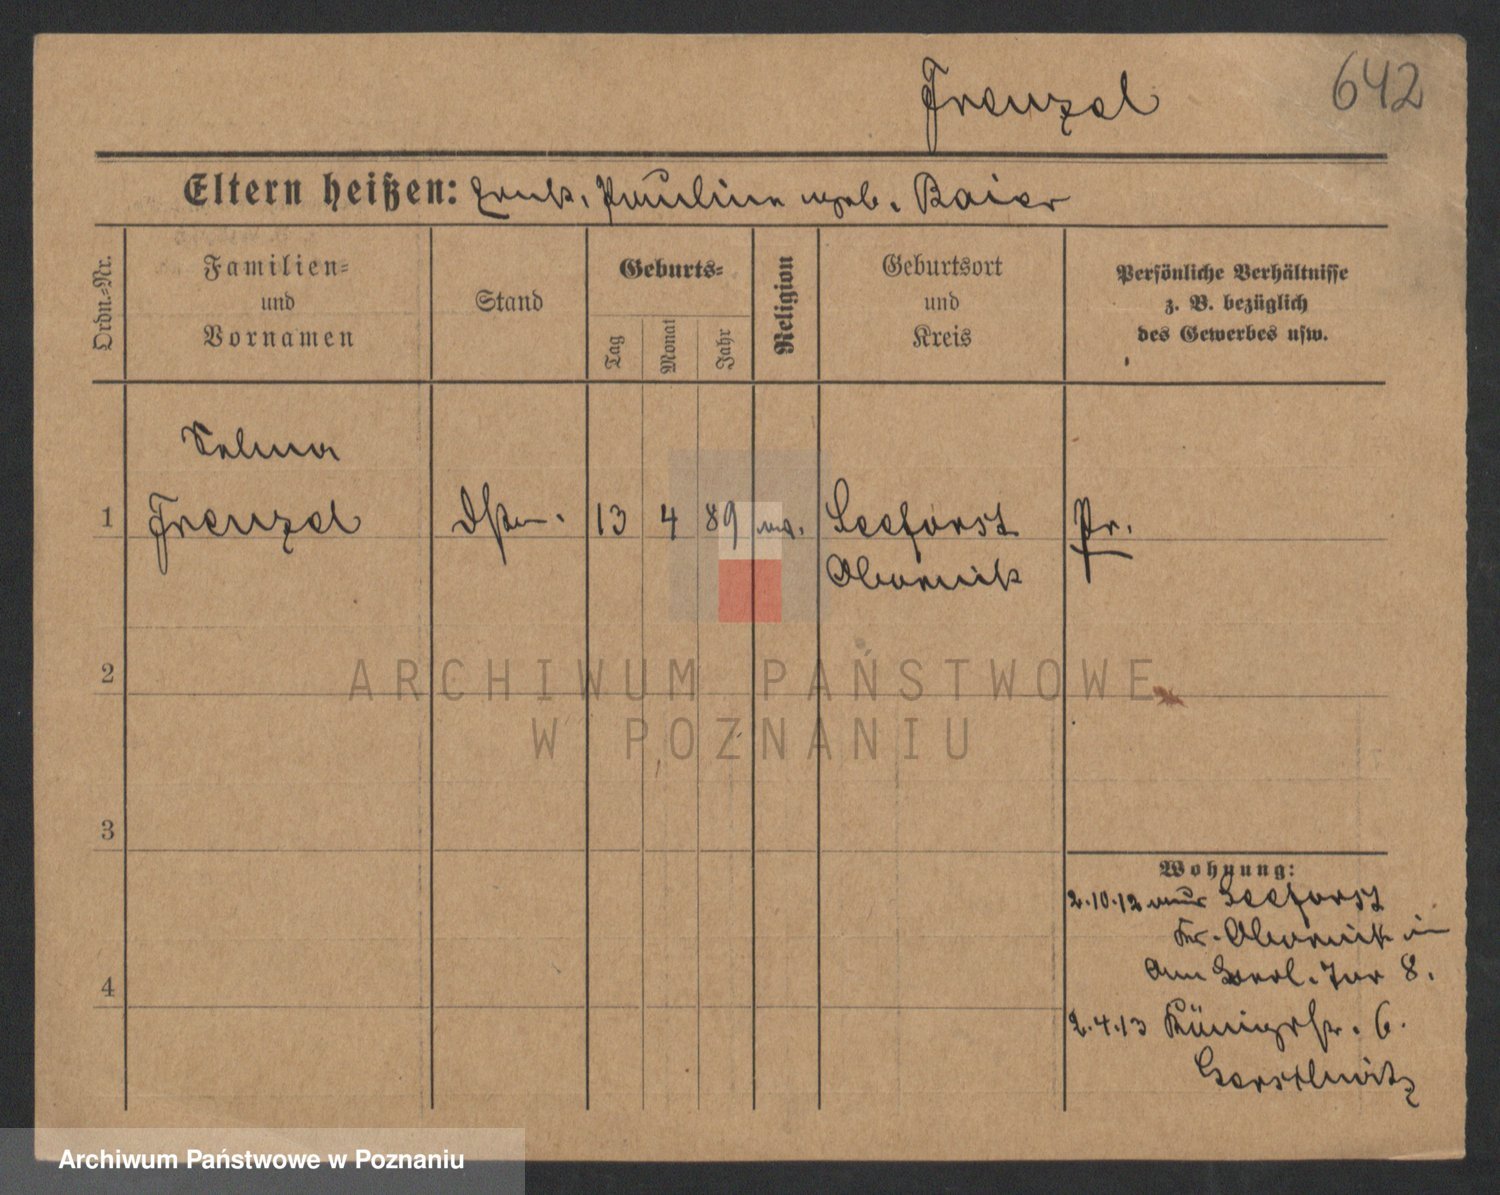 Frenzel
642
Eltern heißen: Ernst, Pauline geb. Baier
Ordn.-Nr.
Familien-
und
Vornamen
Stand
Geburts-
Tag
Monat
Jahr
Religion
Geburtsort
und
Kreis
Persönliche Verhältnisse
z. B. bezüglich
des Gewerbes usw.
Selma
1 Frenzel 13 4 89 ev. Seeforst Pr.
Obornik
2
3
4
Wohnung:
2.10.12 aus Seeforst
Kr. Obornik in
Am Berl. Tor 8.
2.4.13 Königstr. 6.
ARCHIWUM PAŃSTWOWE
W POZNANIU
Archiwum Państwowe w Poznaniu